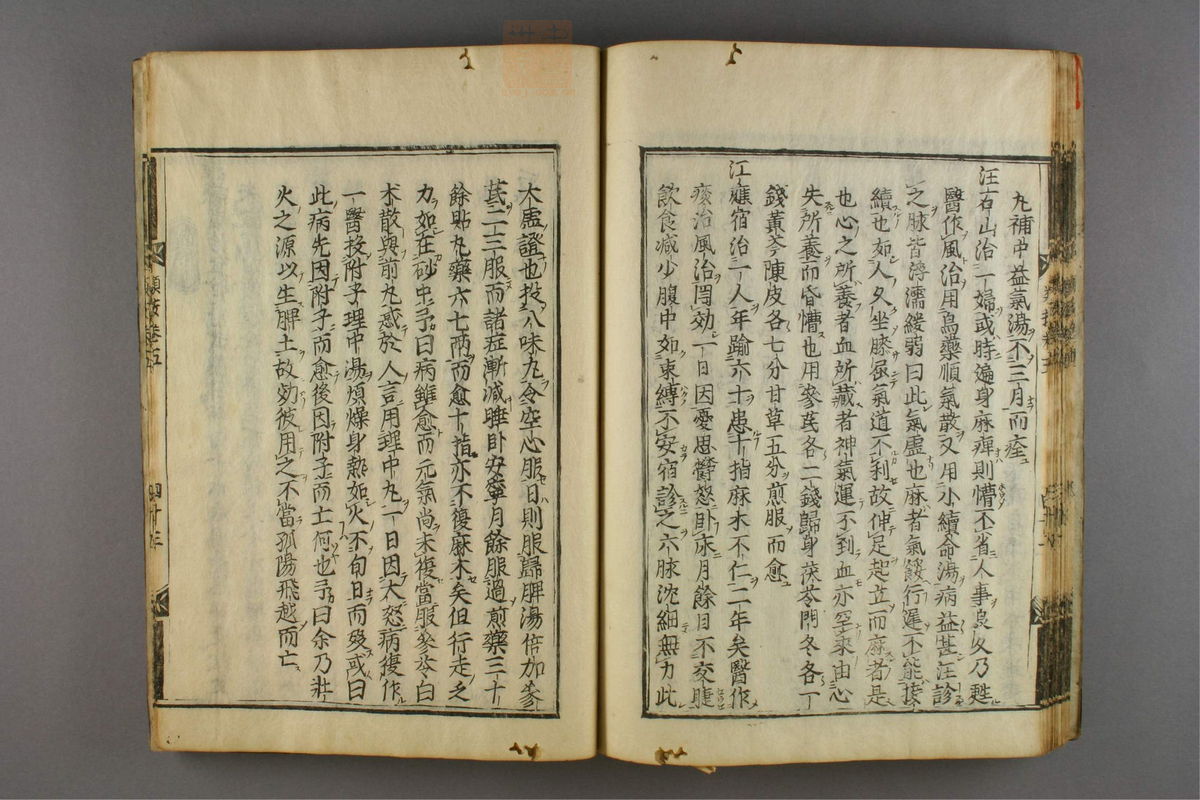 丸補中益氣湯不三月而痊
汪石山治一婦或時遍身麻痺則懵不省人事良久乃甦
醫作風治用烏藥順氣散又用小續命湯病益甚汪診
之脉皆浮濡緩弱曰此氣虛也麻者氣餒行遲不能接
續也如人久坐膝屈氣道不利故伸足起立而麻者是
也心之所養者血所藏者神氣運不到血亦罕來由心
失所養而昏懵也用參芪各二錢歸身茯苓門冬各一
錢黃芩陳皮各七分甘草五分煎服而愈
江應宿治一人年踰六十患十指麻木不仁二年矣醫作
痰治風治罔効一日因憂思鬱怒卧床月餘目不交睫
飲食減少腹中如束縛不安宿診之六脉沈細無力此
大虛證也投八味丸令空心服日則服歸脾湯倍加參
芪二三服而諸症漸減睡卧安寧月餘服過煎藥三十
餘貼丸藥六七兩而愈十指亦不復麻木矣但行走之
力如在砂中予曰病雖愈而元氣尚未復當服參苓白
朮散與前丸惑於人言用理中丸一日因大怒病復作
一醫投附子理中湯煩燥身熱如火不旬日而殁或曰
此病先因附子而愈後因附子而亡何也予曰余乃壯
火之源以生脾土故効彼用之不當孤陽飛越而亡
類按卷五
四十三